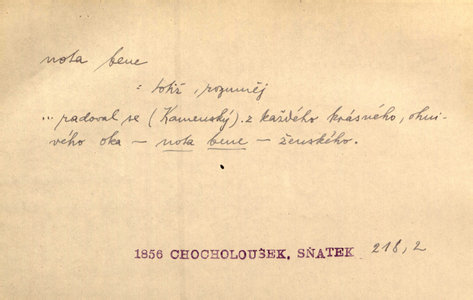 nota bene
= totiž, rozuměj
... radoval se (Kamenský) z každého krásného, ohni-
vého oka – nota bene – ženského.
1856 CHOCHOLOUŠEK, SŇATEK 218, 2